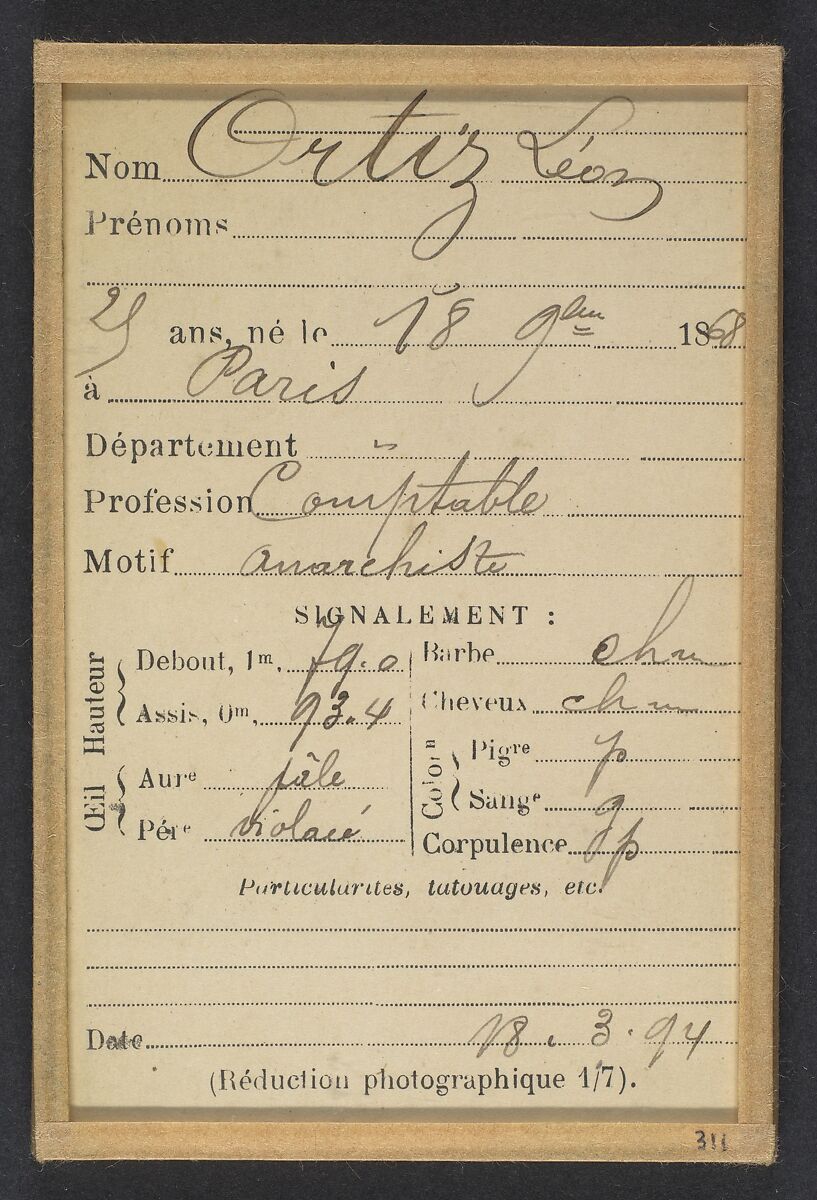 Nom Ortiz Léon
Prénoms
25 ans, né le 18 9bre 1868
à Paris
Département "
Profession Comptable
Motif anarchiste
SIGNALEMENT :
Hauteur
Debout, 1m, 79.0
Assis, 0m, 93.4
Œil
Aure pâle
Pére violacé
Barbe ch m
Cheveux ch m
Coloron
Pigre p
Sange g
Corpulence gp
Particularités, tatouages, etc.
Date 18. 3. 94
(Réduction photographique 1/7).
311